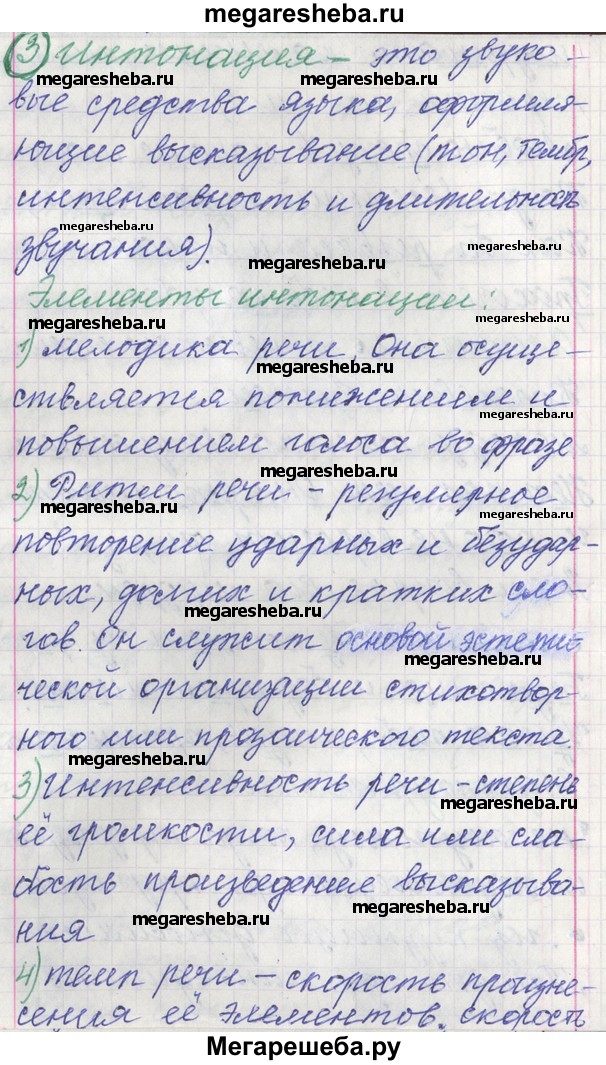 megaresheba.ru
③ Интонация – это звуко-
megaresheba.ru megaresheba.ru
вые средства языка, оформля-
megaresheba.ru megaresheba.ru
ющие высказывание (тон, тембр,
megaresheba.ru
интенсивность и длительность
megaresheba.ru
звучания).
megaresheba.ru
Элементы интонации:
megaresheba.ru
1) мелодика речи. Она осуще-
megaresheba.ru
ствляется понижением и
megaresheba.ru
повышением голоса во фразе
2) Ритм речи – регулярное
megaresheba.ru megaresheba.ru
повторение ударных и безудар-
ных, долгих и кратких сло-
megaresheba.ru
гов. Он служит основой эстети-
megaresheba.ru megaresheba.ru
ческой организации стихотвор-
ного или прозаического текста.
megaresheba.ru
3) Интенсивность речи – степень
megaresheba.ru
её громкости, сила или сла-
бость произведение высказыва-
megaresheba.ru megaresheba.ru
ния
4) темп речи – скорость произне-
сения её элементов, скорость
Мегарешеба.ру